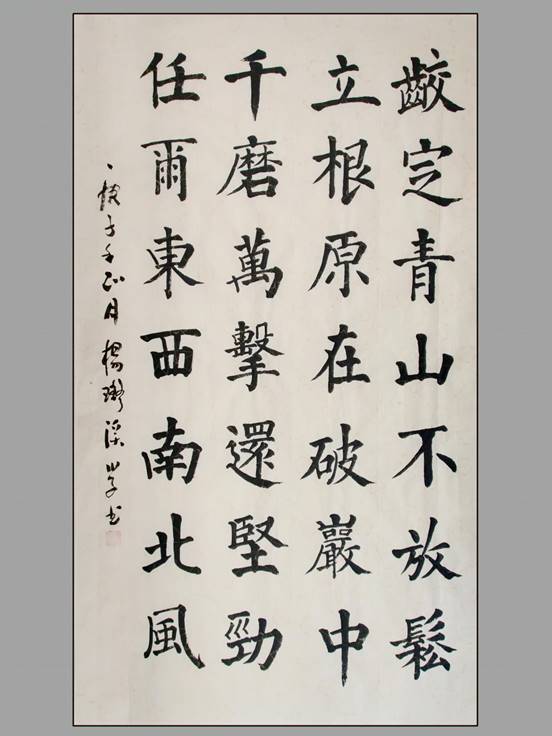 齩定青山不放鬆
立根原在破巖中
千磨萬擊還堅勁
任爾東西南北風
子年正月楊溪書